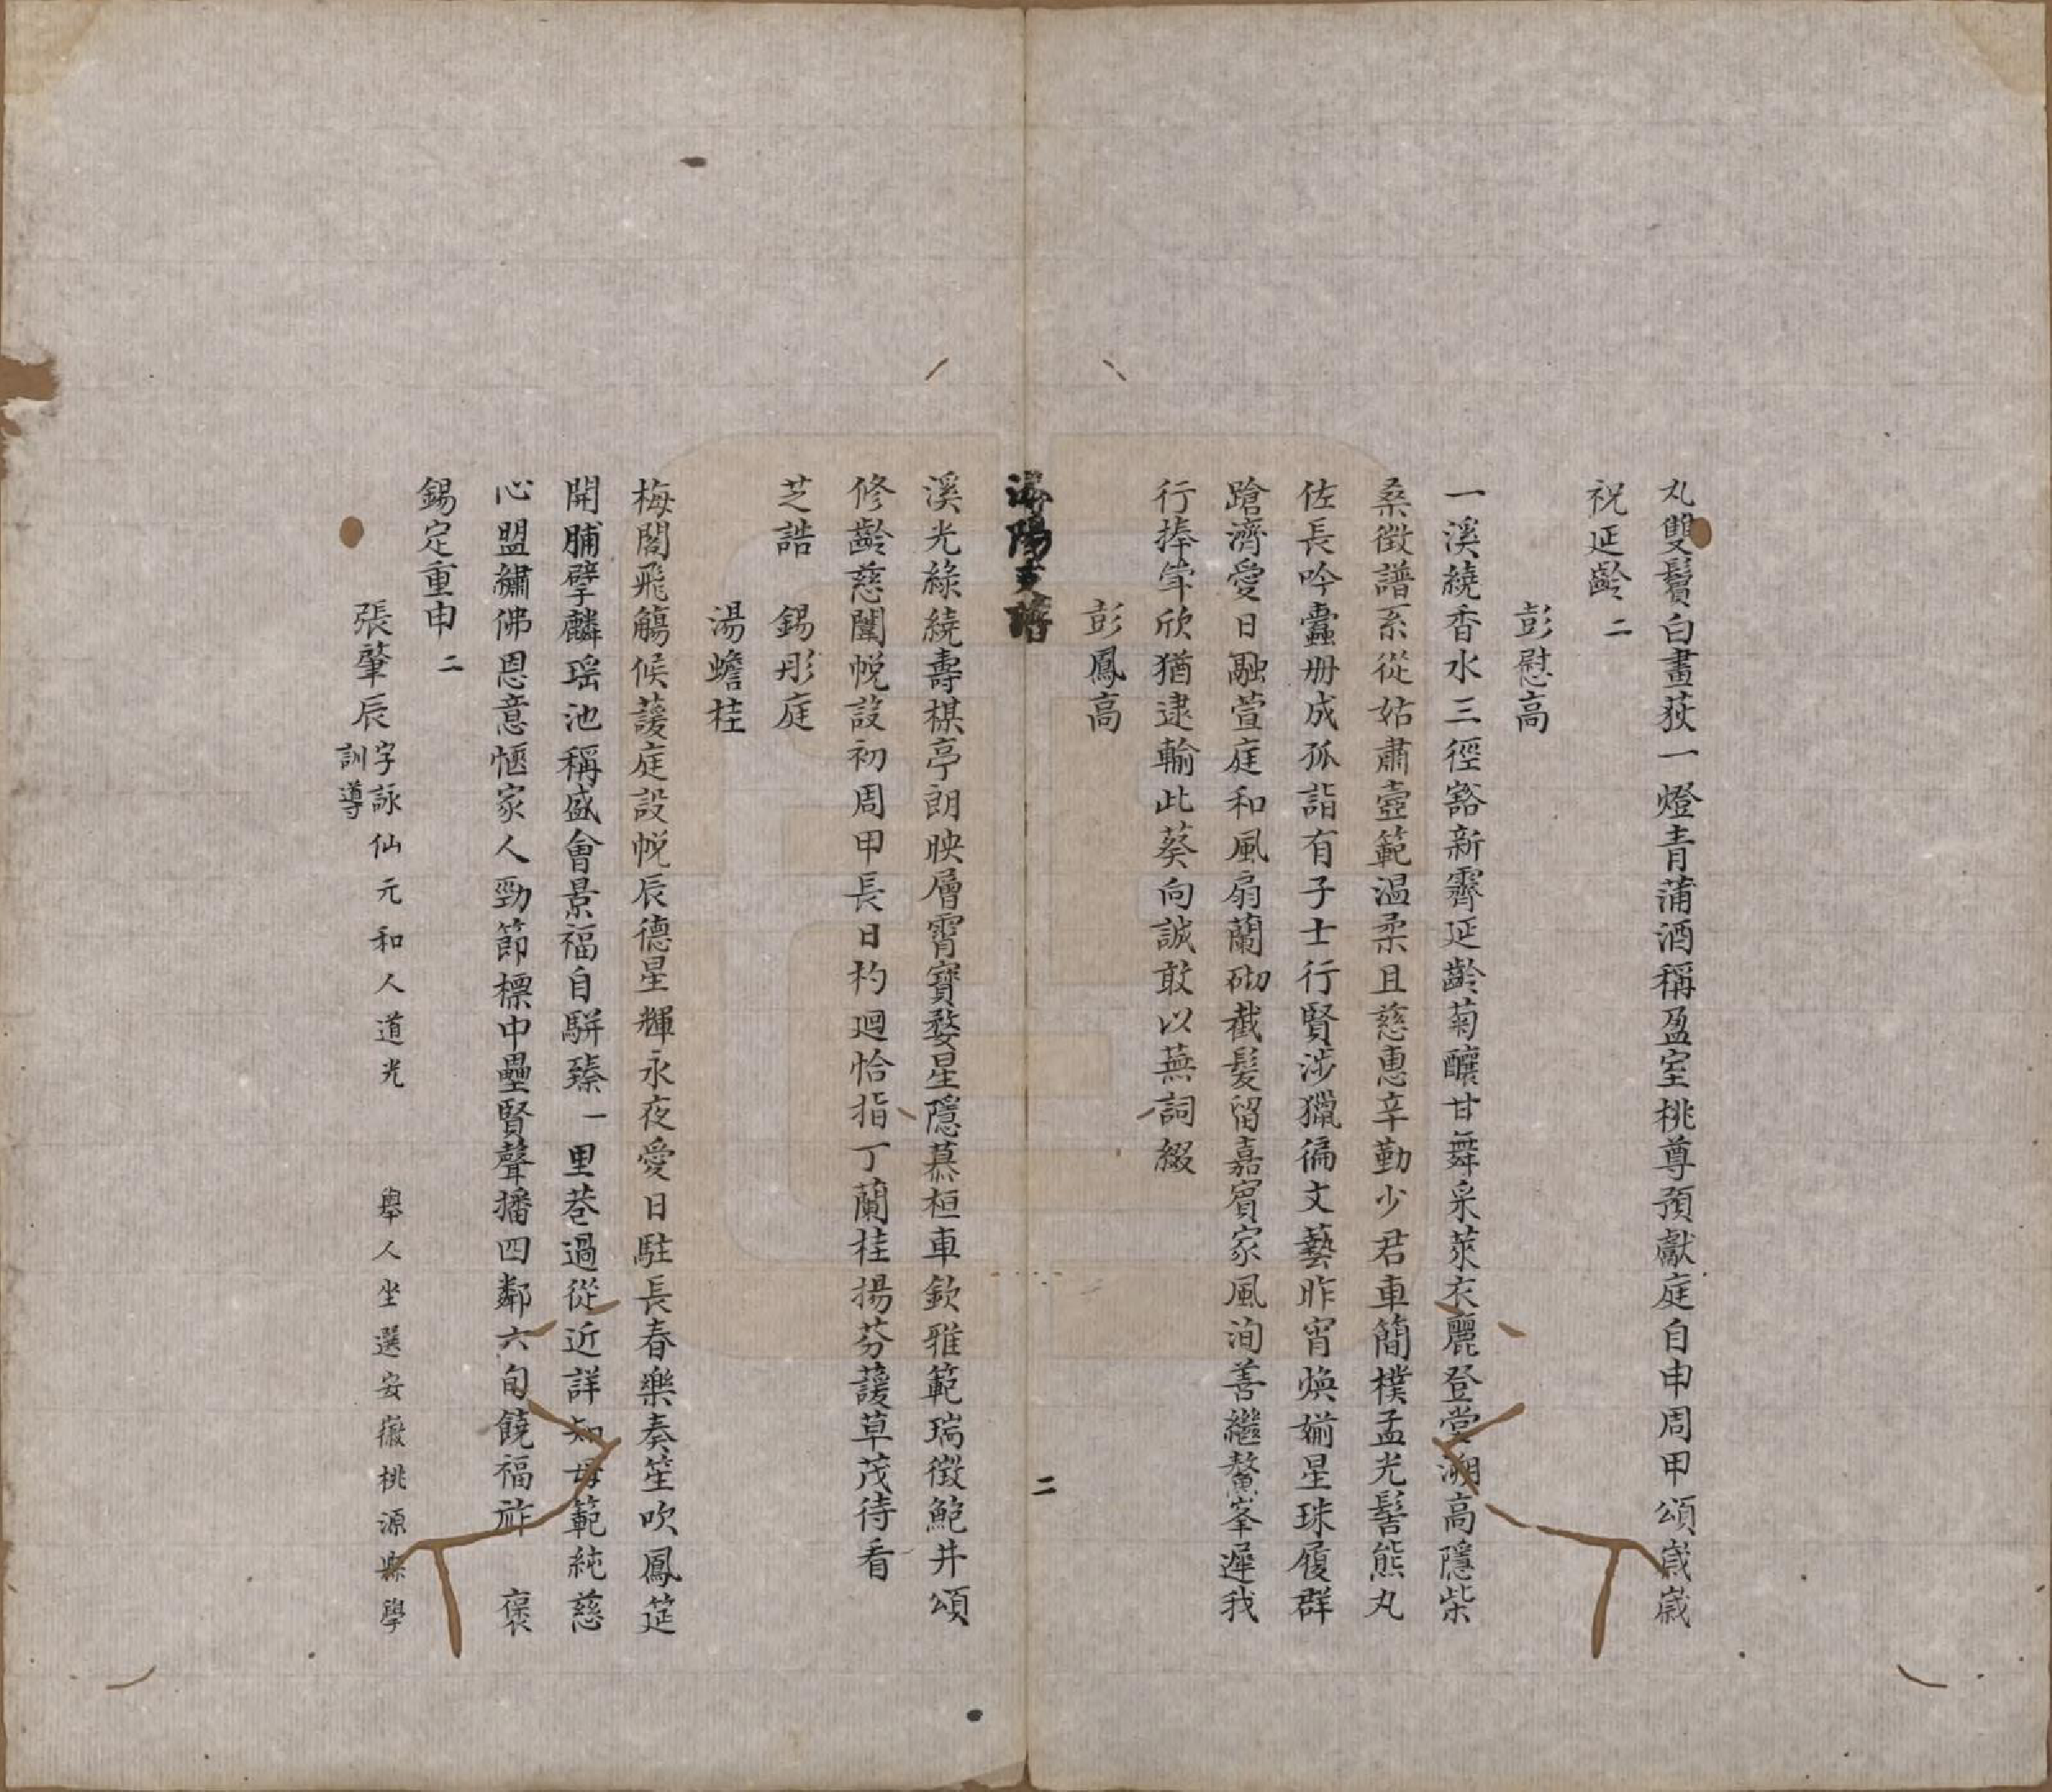 丸雙鬢白晝荻一燈青蒲酒稱盈室桃尊預獻庭自申周甲頌歲歲
祝延齡二
彭慰高
一溪繞香水三徑豁新霽延齡菊釀甘舞采萊衣麗登堂溯高隱柴
桑徵譜系從姑肅壼範溫柔且慈惠辛勤少君車簡樸孟光髻熊丸
佐長吟蠹册成孤詣有子士行賢涉獵徧文藝昨宵煥媊星珠履群
蹌濟愛日融萱庭和風扇蘭砌截髮留嘉賓家風洵善繼鰲峯遲我
行捧斝欣猶逮輸此葵向誠敢以蕪詞綴
彭鳳高
陽支譜
二
溪光綠繞壽楳亭朗映層霄寶婺星隱慕桓車欽雅範瑞徵鮑井頌
修齡慈闈帨設初周甲長日杓迴恰指丁蘭桂揚芬蘐草茂待看
芝誥 錫彤庭
湯蟾桂
梅閣飛觴候蘐庭設帨辰德星輝永夜愛日駐長春樂奏笙吹鳳筵
開脯擘麟瑤池稱盛會景福自駢臻一里巷過從近詳知母範純慈
心盟繡佛恩意愜家人勁節標中壘賢聲播四鄰六旬饒福祚 褒
錫定重申二
張肇辰字詠仙元和人道光 舉人坐選安徽桃源縣學
訓導